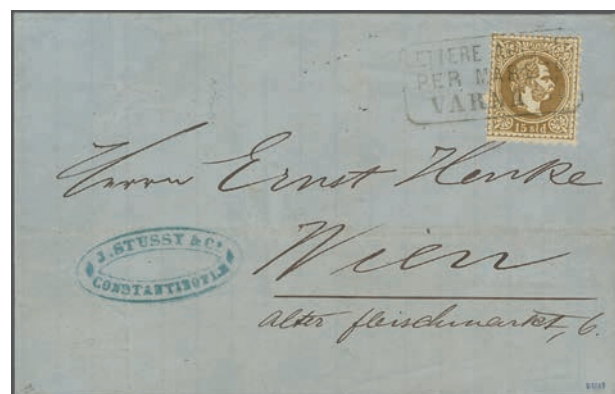 LETTERE
PER MARE
VARNA
15 sld
Herrn Ernst Henke
Wien
alter fleischmarkt, 6.
J. STUSSY & Co
CONSTANTINOPLE